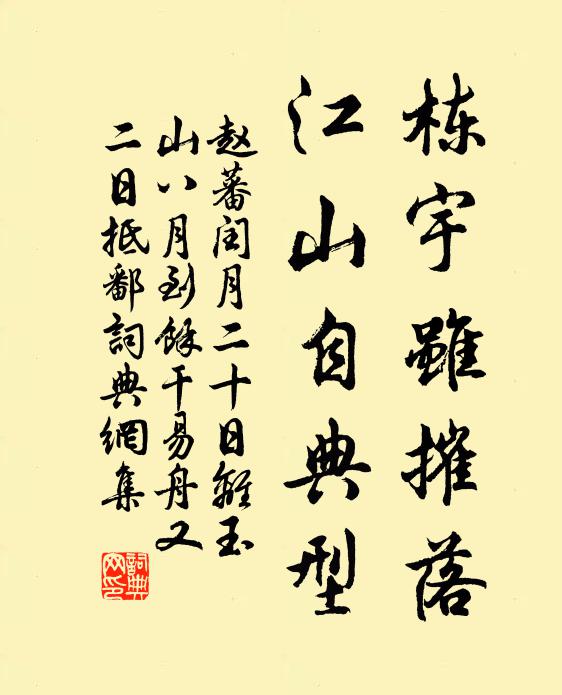 栋宇雖摧落
江山自典型
赵蕃闰月二十日離玉
山八月到餘干易舟又
二日抵鄱詞典網集
詞典
网印